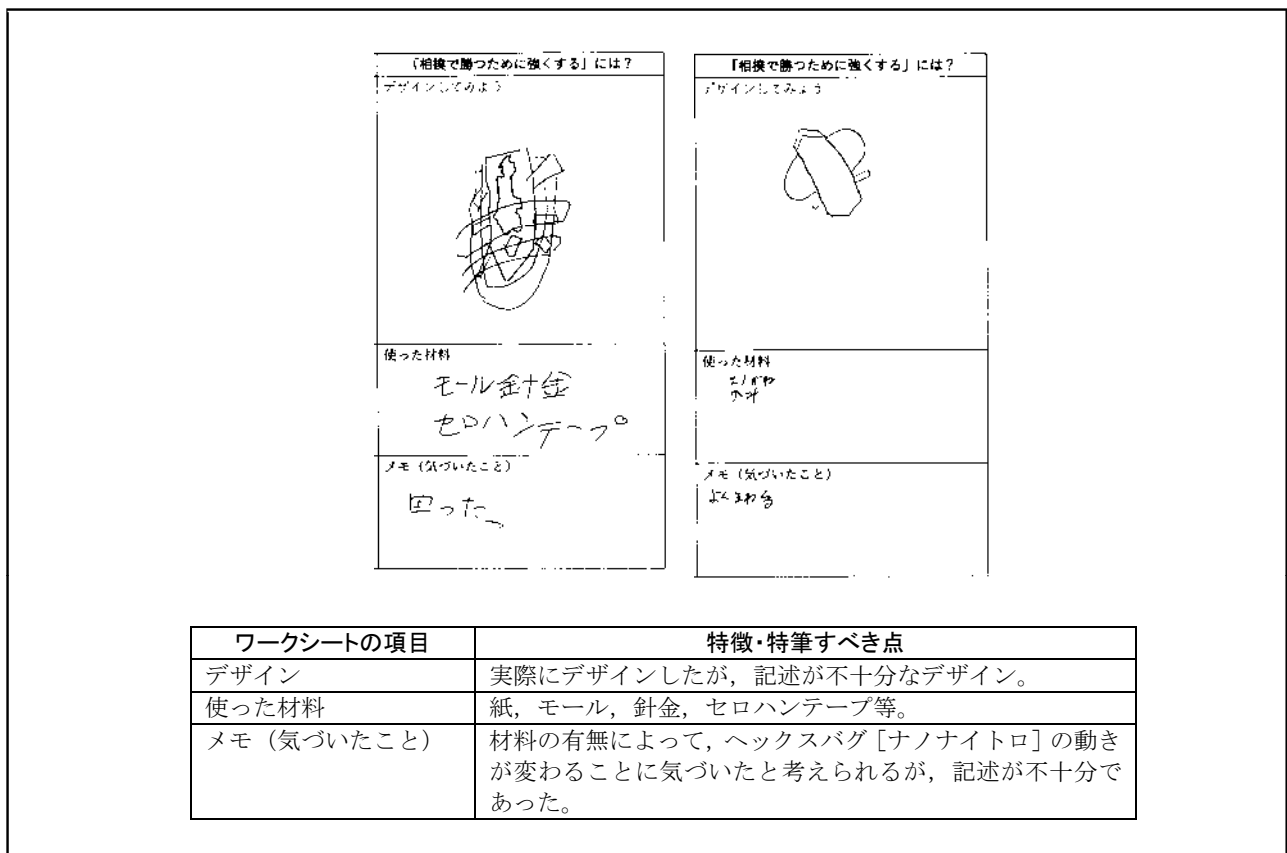 「相撲で勝つために強くする」には？
デザインしてみよう
使った材料
モール金十金
セロハンテープ
メモ（気づいたこと）
回った。
「相撲で勝つために強くする」には？
デザインしてみよう
使った材料
メモ（気づいたこと）
よくまわる
ワークシートの項目 特徴・特筆すべき点
デザイン 実際にデザインしたが，記述が不十分なデザイン。
使った材料 紙，モール，針金，セロハンテープ等。
メモ（気づいたこと） 材料の有無によって，ヘックスバグ［ナノナイトロ］の動き
が変わることに気づいたと考えられるが，記述が不十分で
あった。